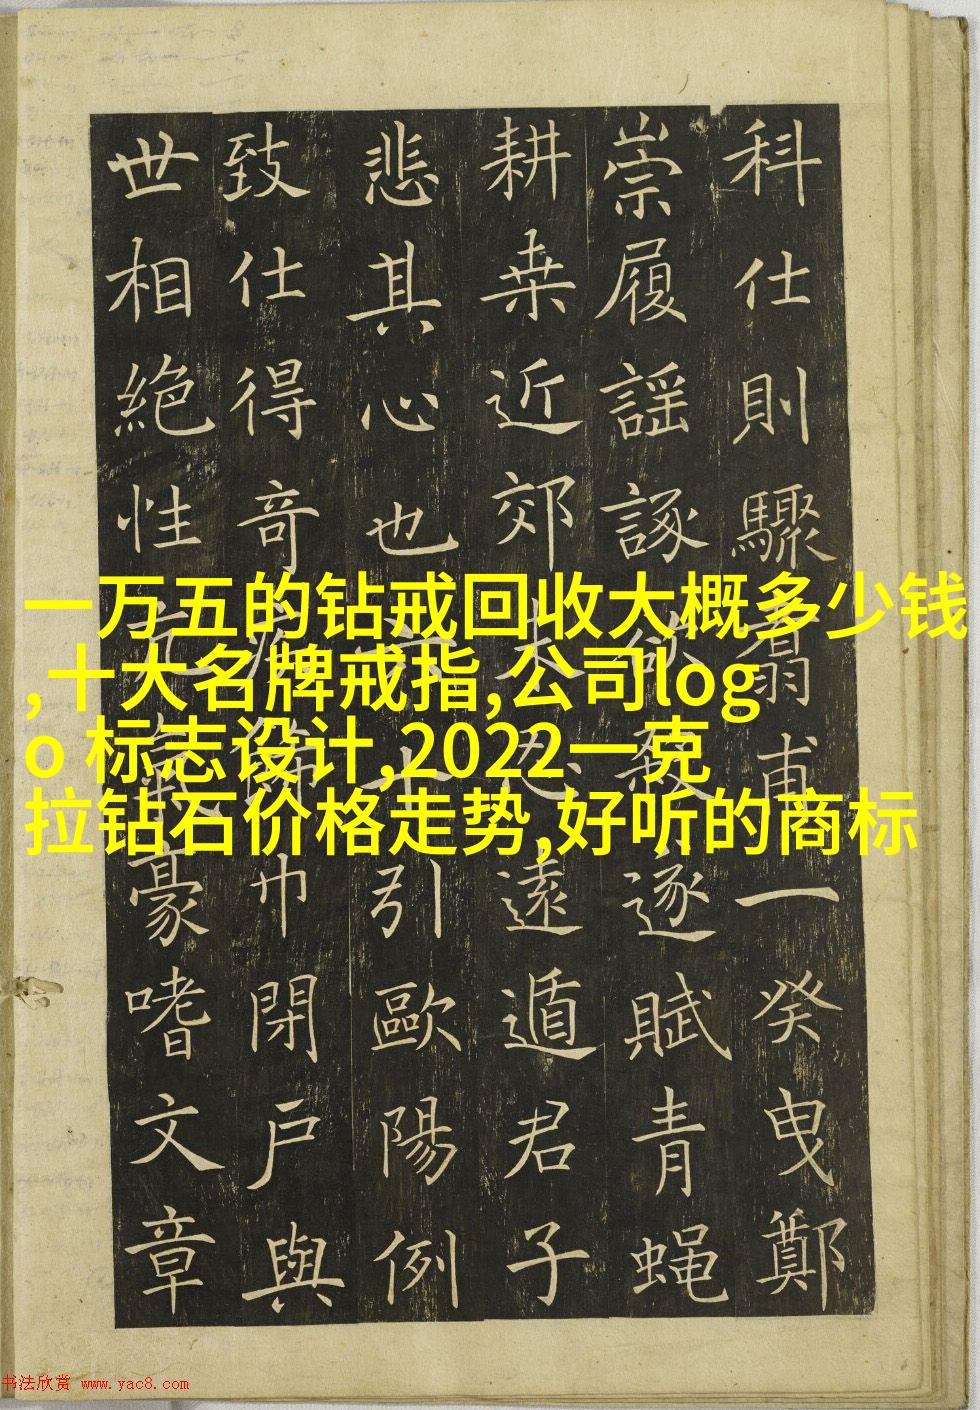 一万五的钻戒回收大概多少钱
,十大名牌戒指,公司log
o 标志设计,2022一克
拉钻石价格走势,好听的商标
科仕則驟
甫一癸曳鄭
崇履謡諑
逐賦青蝇
耕桒近郊
遠遁君子
悲其心也
引歐陽例
致仕得奇
巾閉戸與
世相絶性
豪嗜文章
书法欣赏 www.yac8.com